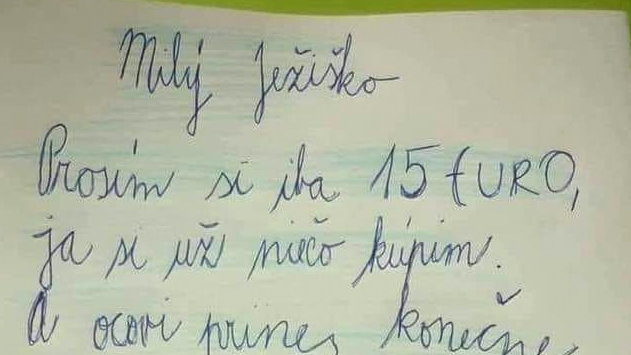 Milý Ježiško
Prosím si iba 15 EURO,
ja si už niečo kúpim.
A ocovi prines konečne